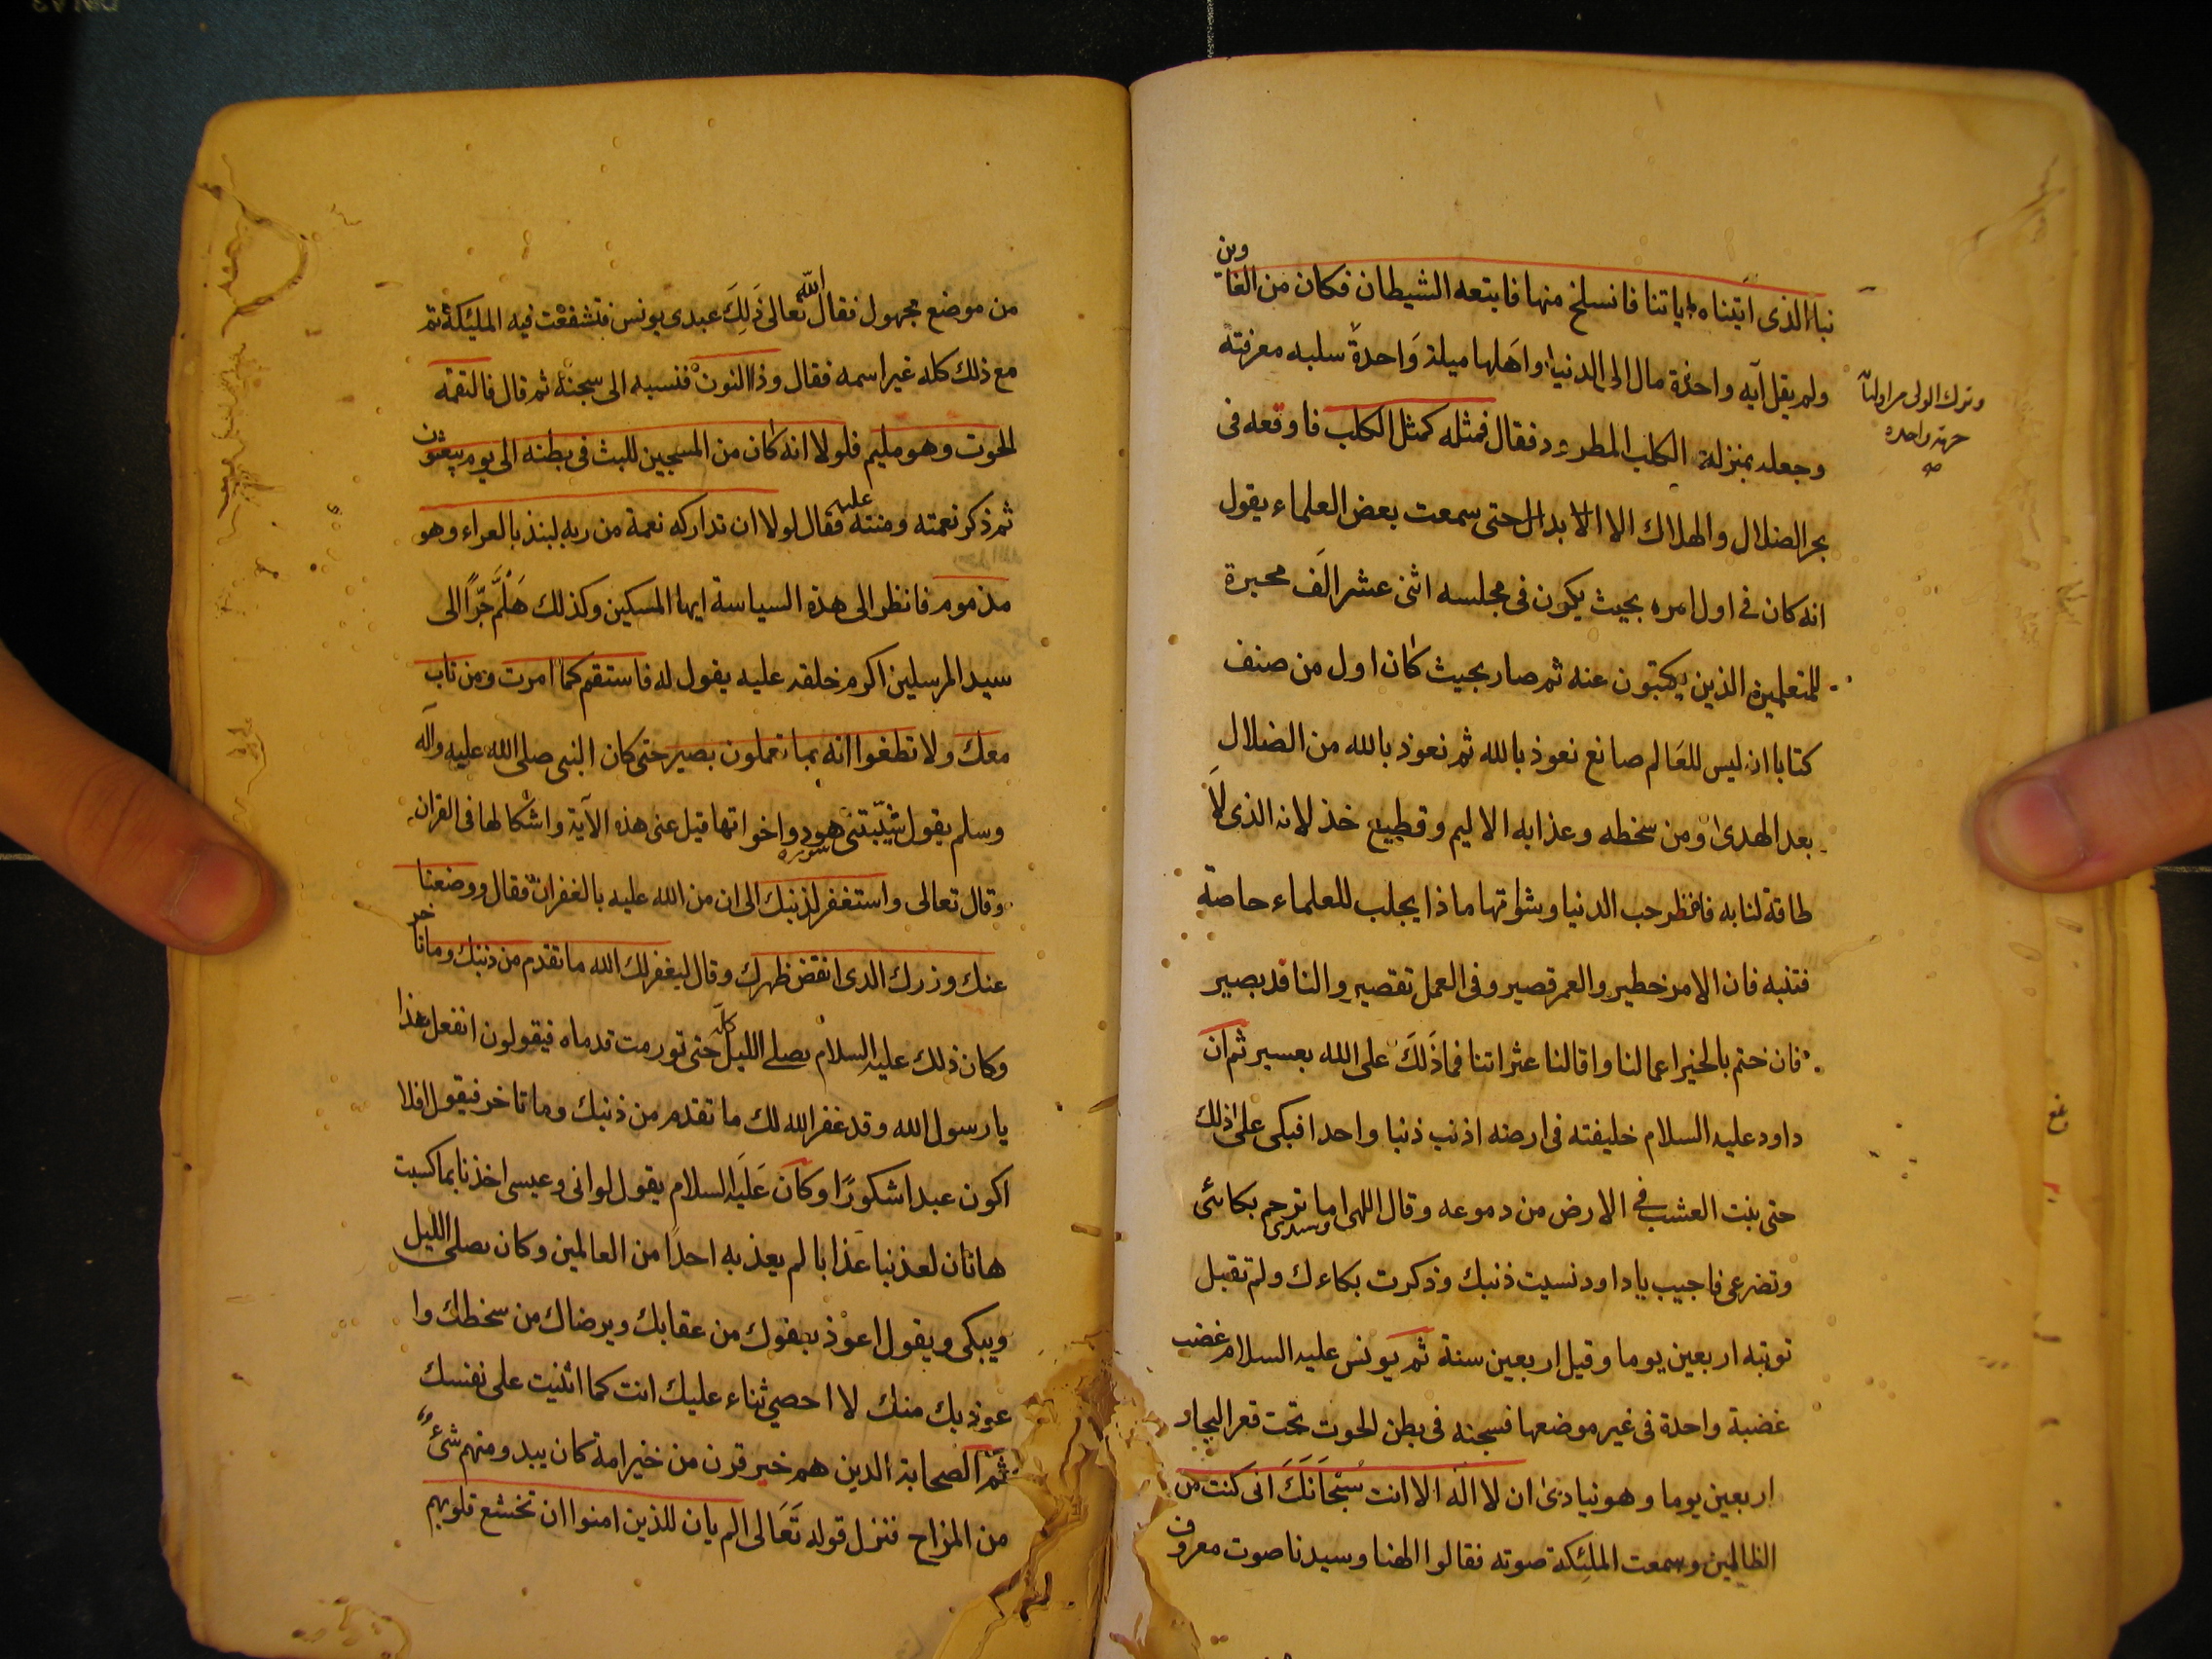 نبأ الذى اتيناه اياتنا فانسلخ منها فاتبعه الشيطان فكان من الغاوين
ولم يقل آيه واحدة مال الى الدنيا واهلها ميلة واحدة سلبه معرفته
وترك الولى من اوليا
حرمة واحده
وجعله بمنزلة الكلب المطرود فقال فمثله كمثل الكلب فاوقعه فى
بحر الضلال والهلاك الا الابدال حتى سمعت بعض العلماء يقول
انه كان فى اول امره بحيث يكون فى مجلسه اثنى عشر الف محبرة
للمتعلمين الذين يكتبون عنه ثم صار بحيث كان اول من صنف
كتابا ان ليس للعالم صانع نعوذ بالله ثم نعوذ بالله من الضلال
بعد الهدى ومن سخطه وعذابه الاليم وقطيع خذلانه الذى لا
طاقة لنا به فانظر حب الدنيا وشواتها ماذا يجلب للعلماء خاصة
فتنبه فان الامر خطير والعمر قصير وفى العمل تقصير والناقد بصير
فان ختم بالخير اعمالنا واقالنا عثراتنا فما ذلك على الله بعسير ثم ان
داود عليه السلام خليفته فى ارضه اذنب ذنبا واحدا فبكى على ذلك
حتى نبت العشب فى الارض من دموعه وقال اللهى وسيدى اما ترحم بكائى
وتضرعى فاجيب يا داود نسيت ذنبك وذكرت بكاءك ولم تقبل
توبته اربعين يوما وقيل اربعين سنة ثم يونس عليه السلام غضب
غضبة واحدة فى غير موضعها فسجنه فى بطن الحوت تحت قعر البحار
اربعين يوما وهو ينادى ان لا اله الا انت سبحانك انى كنت من
الظالمين وسمعت الملئكة صوته فقالوا الهنا وسيدنا صوت معروف
من موضع مجهول فقال الله تعالى ذلك عبدى يونس فتشفعت فيه الملئكة ثم
مع ذلك كله غير اسمه فقال وذا النون فنسبه الى سجنه ثم قال فالتقمه
الحوت وهو مليم فلولا انه كان من المسبحين للبث فى بطنه الى يوم يبعثون
ثم ذكر نعمته ومنته عليه فقال لولا ان تداركه نعمة من ربه لنبذ بالعراء وهو
مذموم فانظر الى هذه السياسة ايها المسكين وكذلك هلم جرا الى
سيد المرسلين اكرم خلقه عليه يقول له فاستقم كما امرت ومن تاب
معك ولا تطغوا انه بما تعملون بصير حتى كان النبى صلى الله عليه وآله
وسلم يقول شيبتنى سورة هود واخواتها قيل عنى هذه الآية واشكالها فى القران
وقال تعالى واستغفر لذنبك الى ان من الله عليه بالغفران فقال ووضعنا
عنك وزرك الذى انقض ظهرك وقال ليغفر لك الله ما تقدم من ذنبك وما تاخر
وكان ذلك عليه السلام يصلى الليل كله حتى تورمت قدماه فيقولون اتفعل هذا
يا رسول الله وقد غفر الله لك ما تقدم من ذنبك وما تاخر فيقول افلا
اكون عبدا شكورا وكان عليه السلام يقول لو انى وعيسى اخذنا بما كسبت
هاتان لعذبنا عذابا لم يعذبه احدا من العالمين وكان يصلى الليل
ويبكى ويقول اعوذ بعفوك من عقابك وبرضاك من سخطك وا
عوذ بك منك لا احصي ثناء عليك انت كما اثنيت على نفسك
ثم الصحابة الذين هم خير قرن من خير امة كان يبدو منهم شئ
من المزاح فنزل قوله تعالى الم يان للذين امنوا ان تخشع قلوبهم